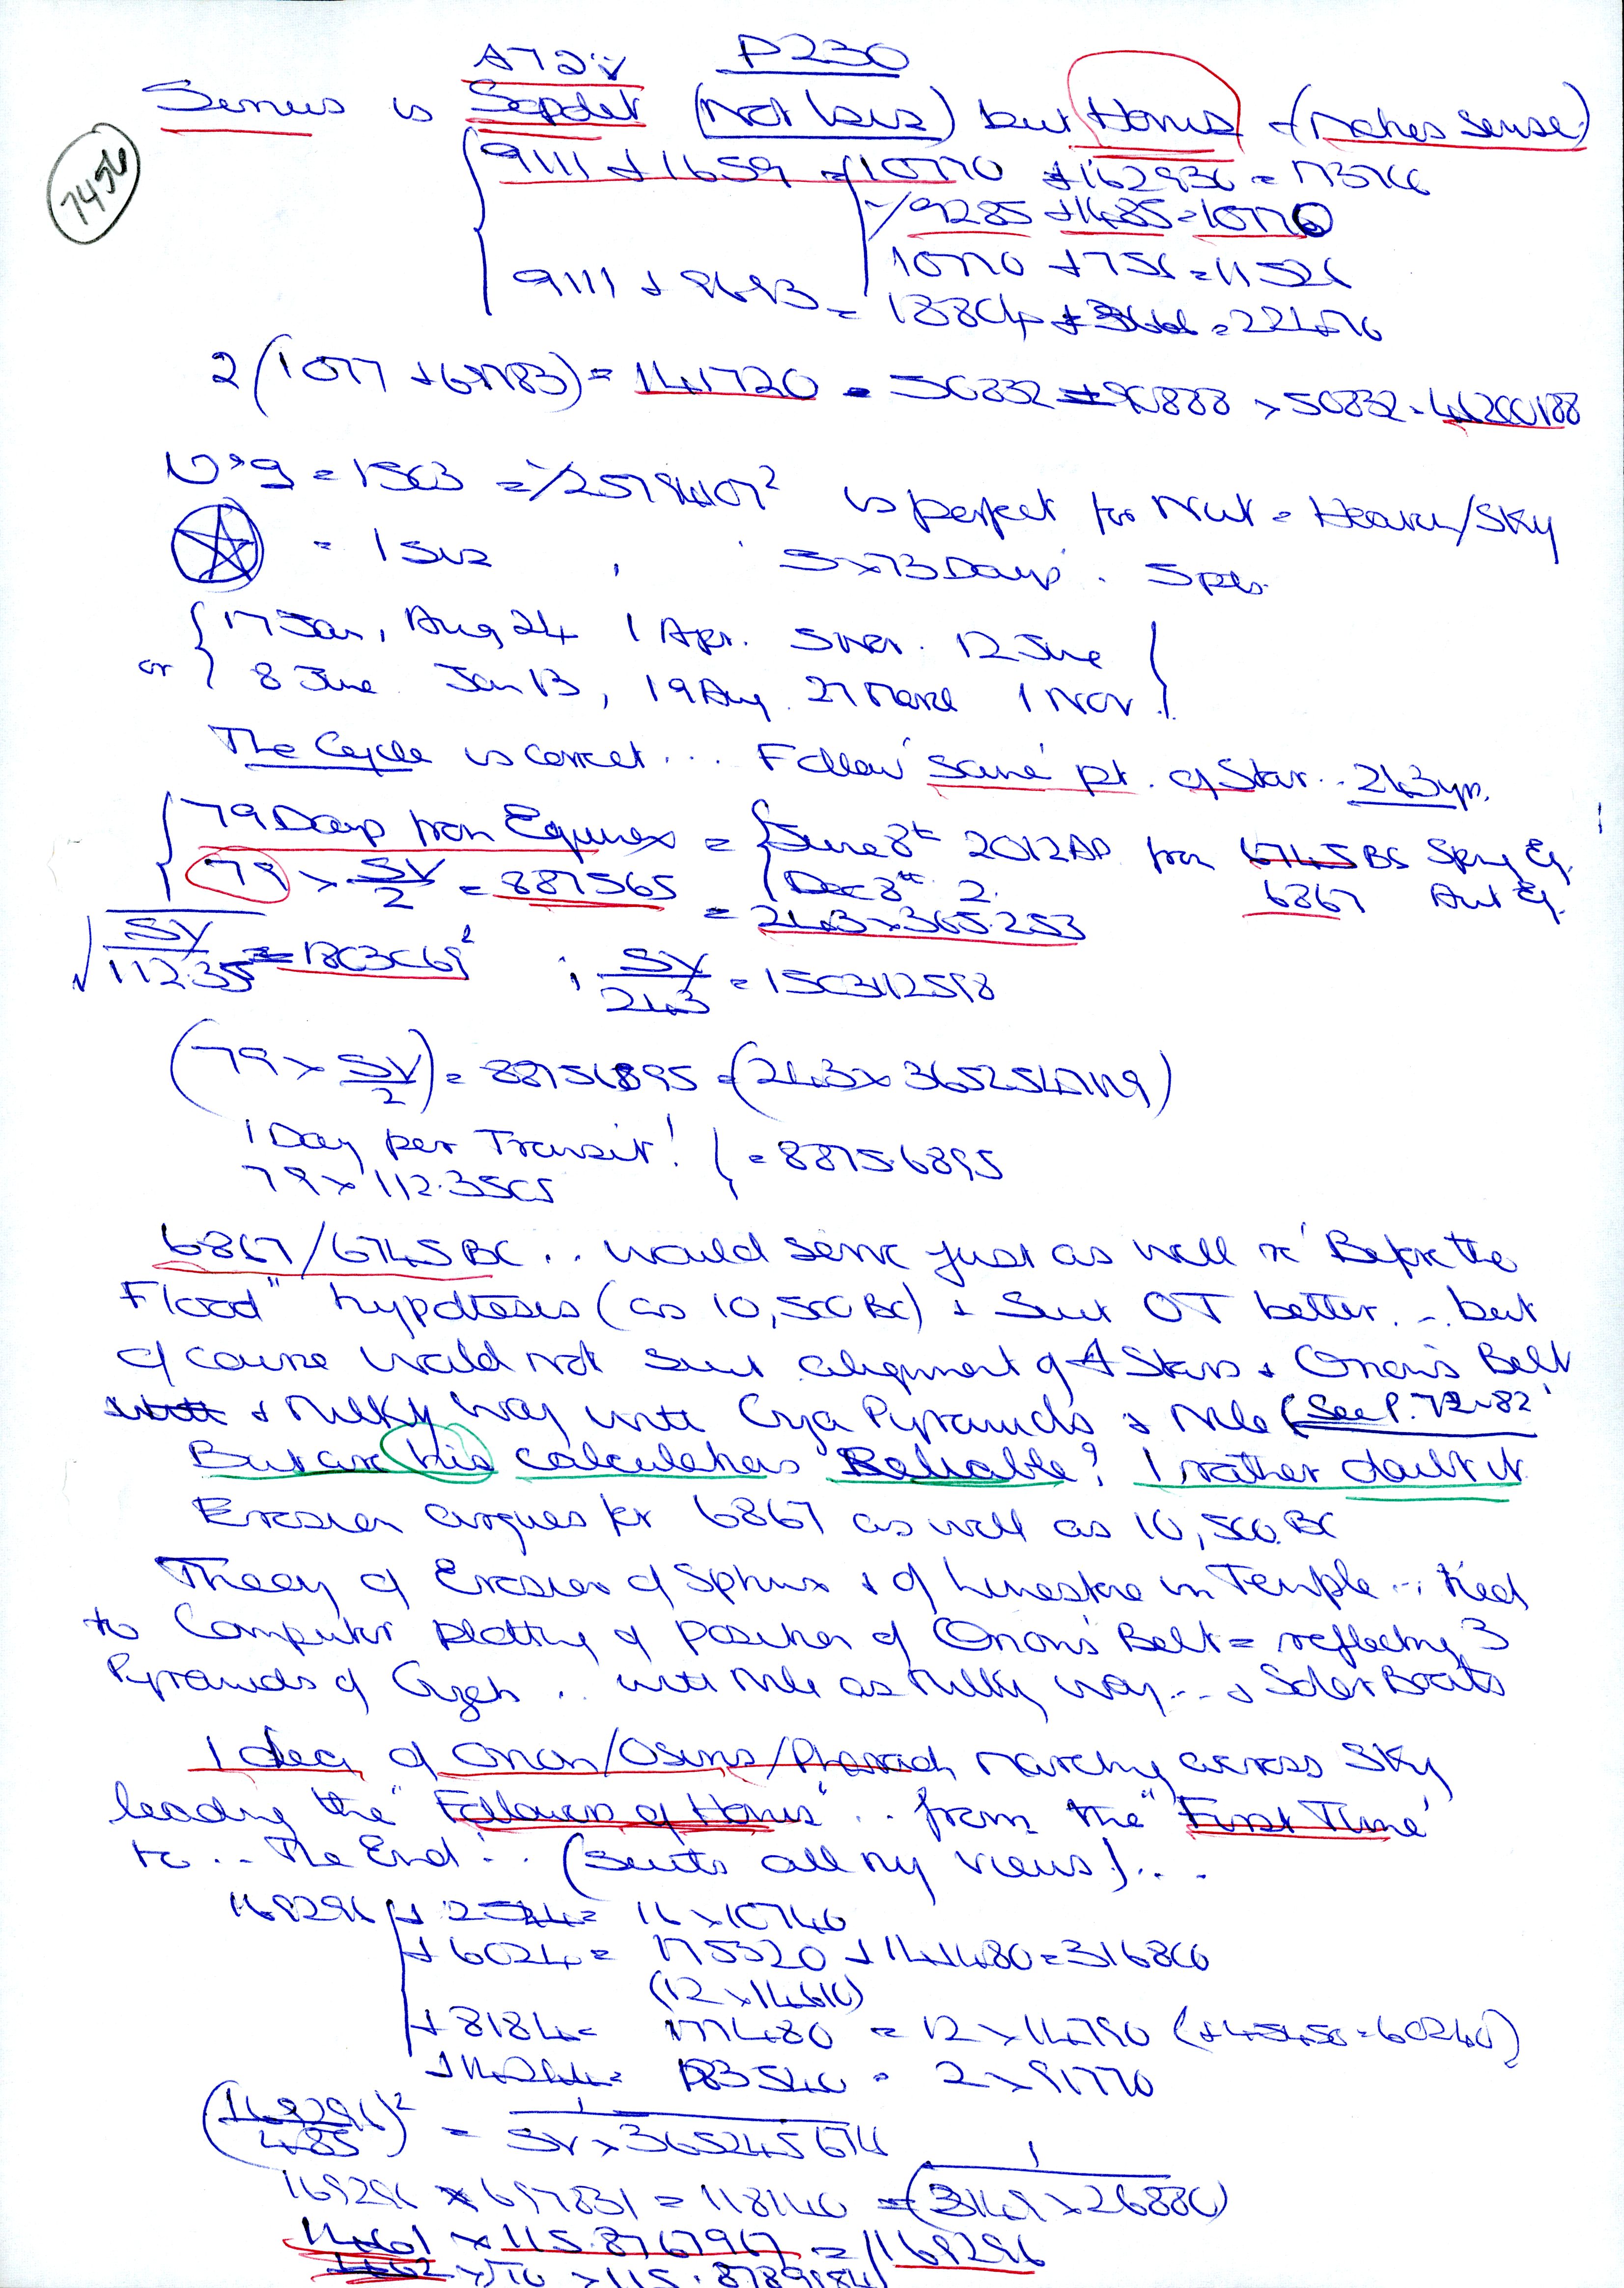 P230
Sirius is Sopdet (Not Isis) but Horus (Makes Sense)
7456
9111 + 1659 = 10770 + 162936 = 173706
9285 + 1485 = 10770
10770 + 756 = 11526
9111 + 9693 = 18804 =
2( = 141720 = 50832 + 90888 × 50832 =
= 1503 = is perfect for Nut = Heaven/Sky
= 1 5 × 73 Days. 5 pts.
17 Jan, Aug 24 1 Apr. 5 Nov. 12 June
or 8 June Jan 13, 19 Aug. 27 March 1 Nov.
The Cycle is correct... Follow 'same' pt. of Star.. 243 yrs.
79 Days from Equinox = June 8th 2012 AD from 6745 BC Spring Eq.
79 × SV/2 = 887565 Dec 8th 2. 6867 Aut Eq.
= 243 × 365.253
SV/112.35 = ; SV/243 = 150342598
(79 × SV/2) = 88756895 = (243 ×
1 Day per Transit!
79 × 112.3505 = 8875.6895
6867/6745 BC .. would serve just as well in "Before the
Flood" hypothesis (as 10,500 BC) + Suit OT better... but
of course would not suit alignment of 4 Stars + Orion's Belt
+ Milky Way with Giza Pyramids + Nile (See P. 72-82
But are his calculations Reliable? I rather doubt it.
Erosion argues for 6867 as well as 10,500. BC
Theory of Erosion of Sphinx + of Limestone in Temple... tied
to Computer plotting of position of Orion's Belt = reflecting 3
Pyramids of Gizeh .. with Nile as Milky Way... + Solar Boats
Idea of Orion/Osiris/Pharaoh marching across Sky
leading the "Followers of Horus" .. from the "First Time"
to... The End'... (Suits all my views)...
169296 + 2544 = 16 × 10740
+ 6024 = 175320 + 141480 = 316800
(12 × 14610)
+ 8184 = 177480 = 12 × 14790
+ 14244 = 183540 = 2 × 91770
(169296/485)² = 1/SV × 365245674
169296 × 697831 = 118140 =
× 115.8767967 = 169296